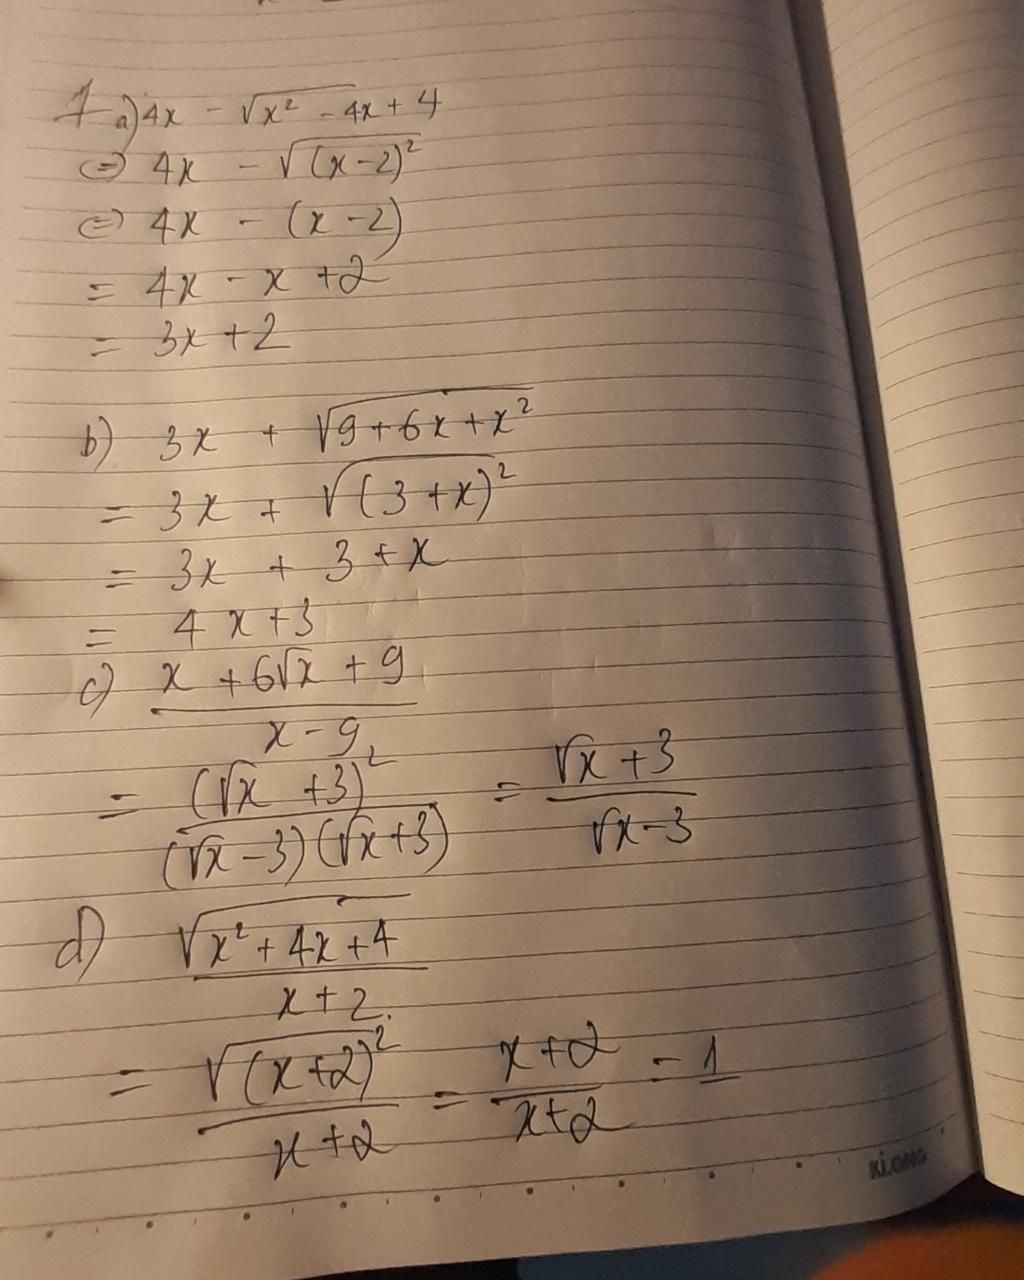 1 a) 4x - √x² - 4x + 4
⇔ 4x - √(x-2)²
⇔ 4x - (x-2)
= 4x - x + 2
= 3x + 2
b) 3x + √9+6x+x²
= 3x + √(3+x)²
= 3x + 3 + x
= 4x+3
c) x + 6√x + 9
x - 9
= (√x + 3)² = √x + 3
(√x - 3)(√x + 3) √x - 3
d) √x² + 4x + 4
x + 2
= √(x+2)² = x+2 = 1
x+2 x+2
Ki.ONG